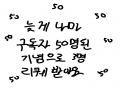 50 50 50
늦게 나마
50 구독자 50명된 50
기념으로 3명
리퀘 받아요
50 50 50